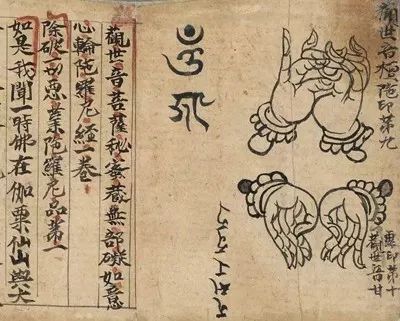 觀世音檀陁印第九
觀世音甘
露印第十
觀世音菩薩秘蜜藏無障礙如意
心輪陀羅尼經一卷
除破一切惡業陀羅尼品第一
如是我聞一時佛在伽栗仙山與大